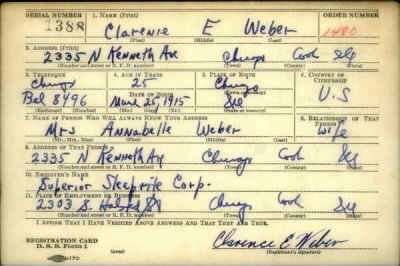 SERIAL NUMBER 1. NAME (Print) ORDER NUMBER
1388 Clarence E Weber 1480
(First) (Middle) (Last)
2. ADDRESS (Print)
2335 N Kenneth Ave Chicago Cook Ill
(Number and street or R. F. D. number) (Town) (County) (State)
3. TELEPHONE 4. AGE IN YEARS 5. PLACE OF BIRTH 6. COUNTRY OF CITIZENSHIP
Chicago 25 Chicago
DATE OF BIRTH
Bel 8496 25, 1915 Ill U.S
(Exchange) (Number) (Mo.) (Day) (Yr.) (State or country)
7. NAME OF PERSON WHO WILL ALWAYS KNOW YOUR ADDRESS 8. RELATIONSHIP OF THAT PERSON
Mrs Annabelle Weber Wife
(Mr., Mrs., Miss) (First) (Middle) (Last)
9. ADDRESS OF THAT PERSON
2335 N Kenneth Av Chicago Cook Ill
(Number and street or R. F. D. number) (Town) (County) (State)
10. EMPLOYER'S NAME
Superior Corp.
11. PLACE OF EMPLOYMENT OR BUSINESS
2303 S. Halsted St Chicago Cook Ill
(Number and street or R. F. D. number) (Town) (County) (State)
I AFFIRM THAT I HAVE VERIFIED ABOVE ANSWERS AND THAT THEY ARE TRUE.
REGISTRATION CARD
D. S. S. Form 1 (over) Clarence E Weber
(Registrant's signature)